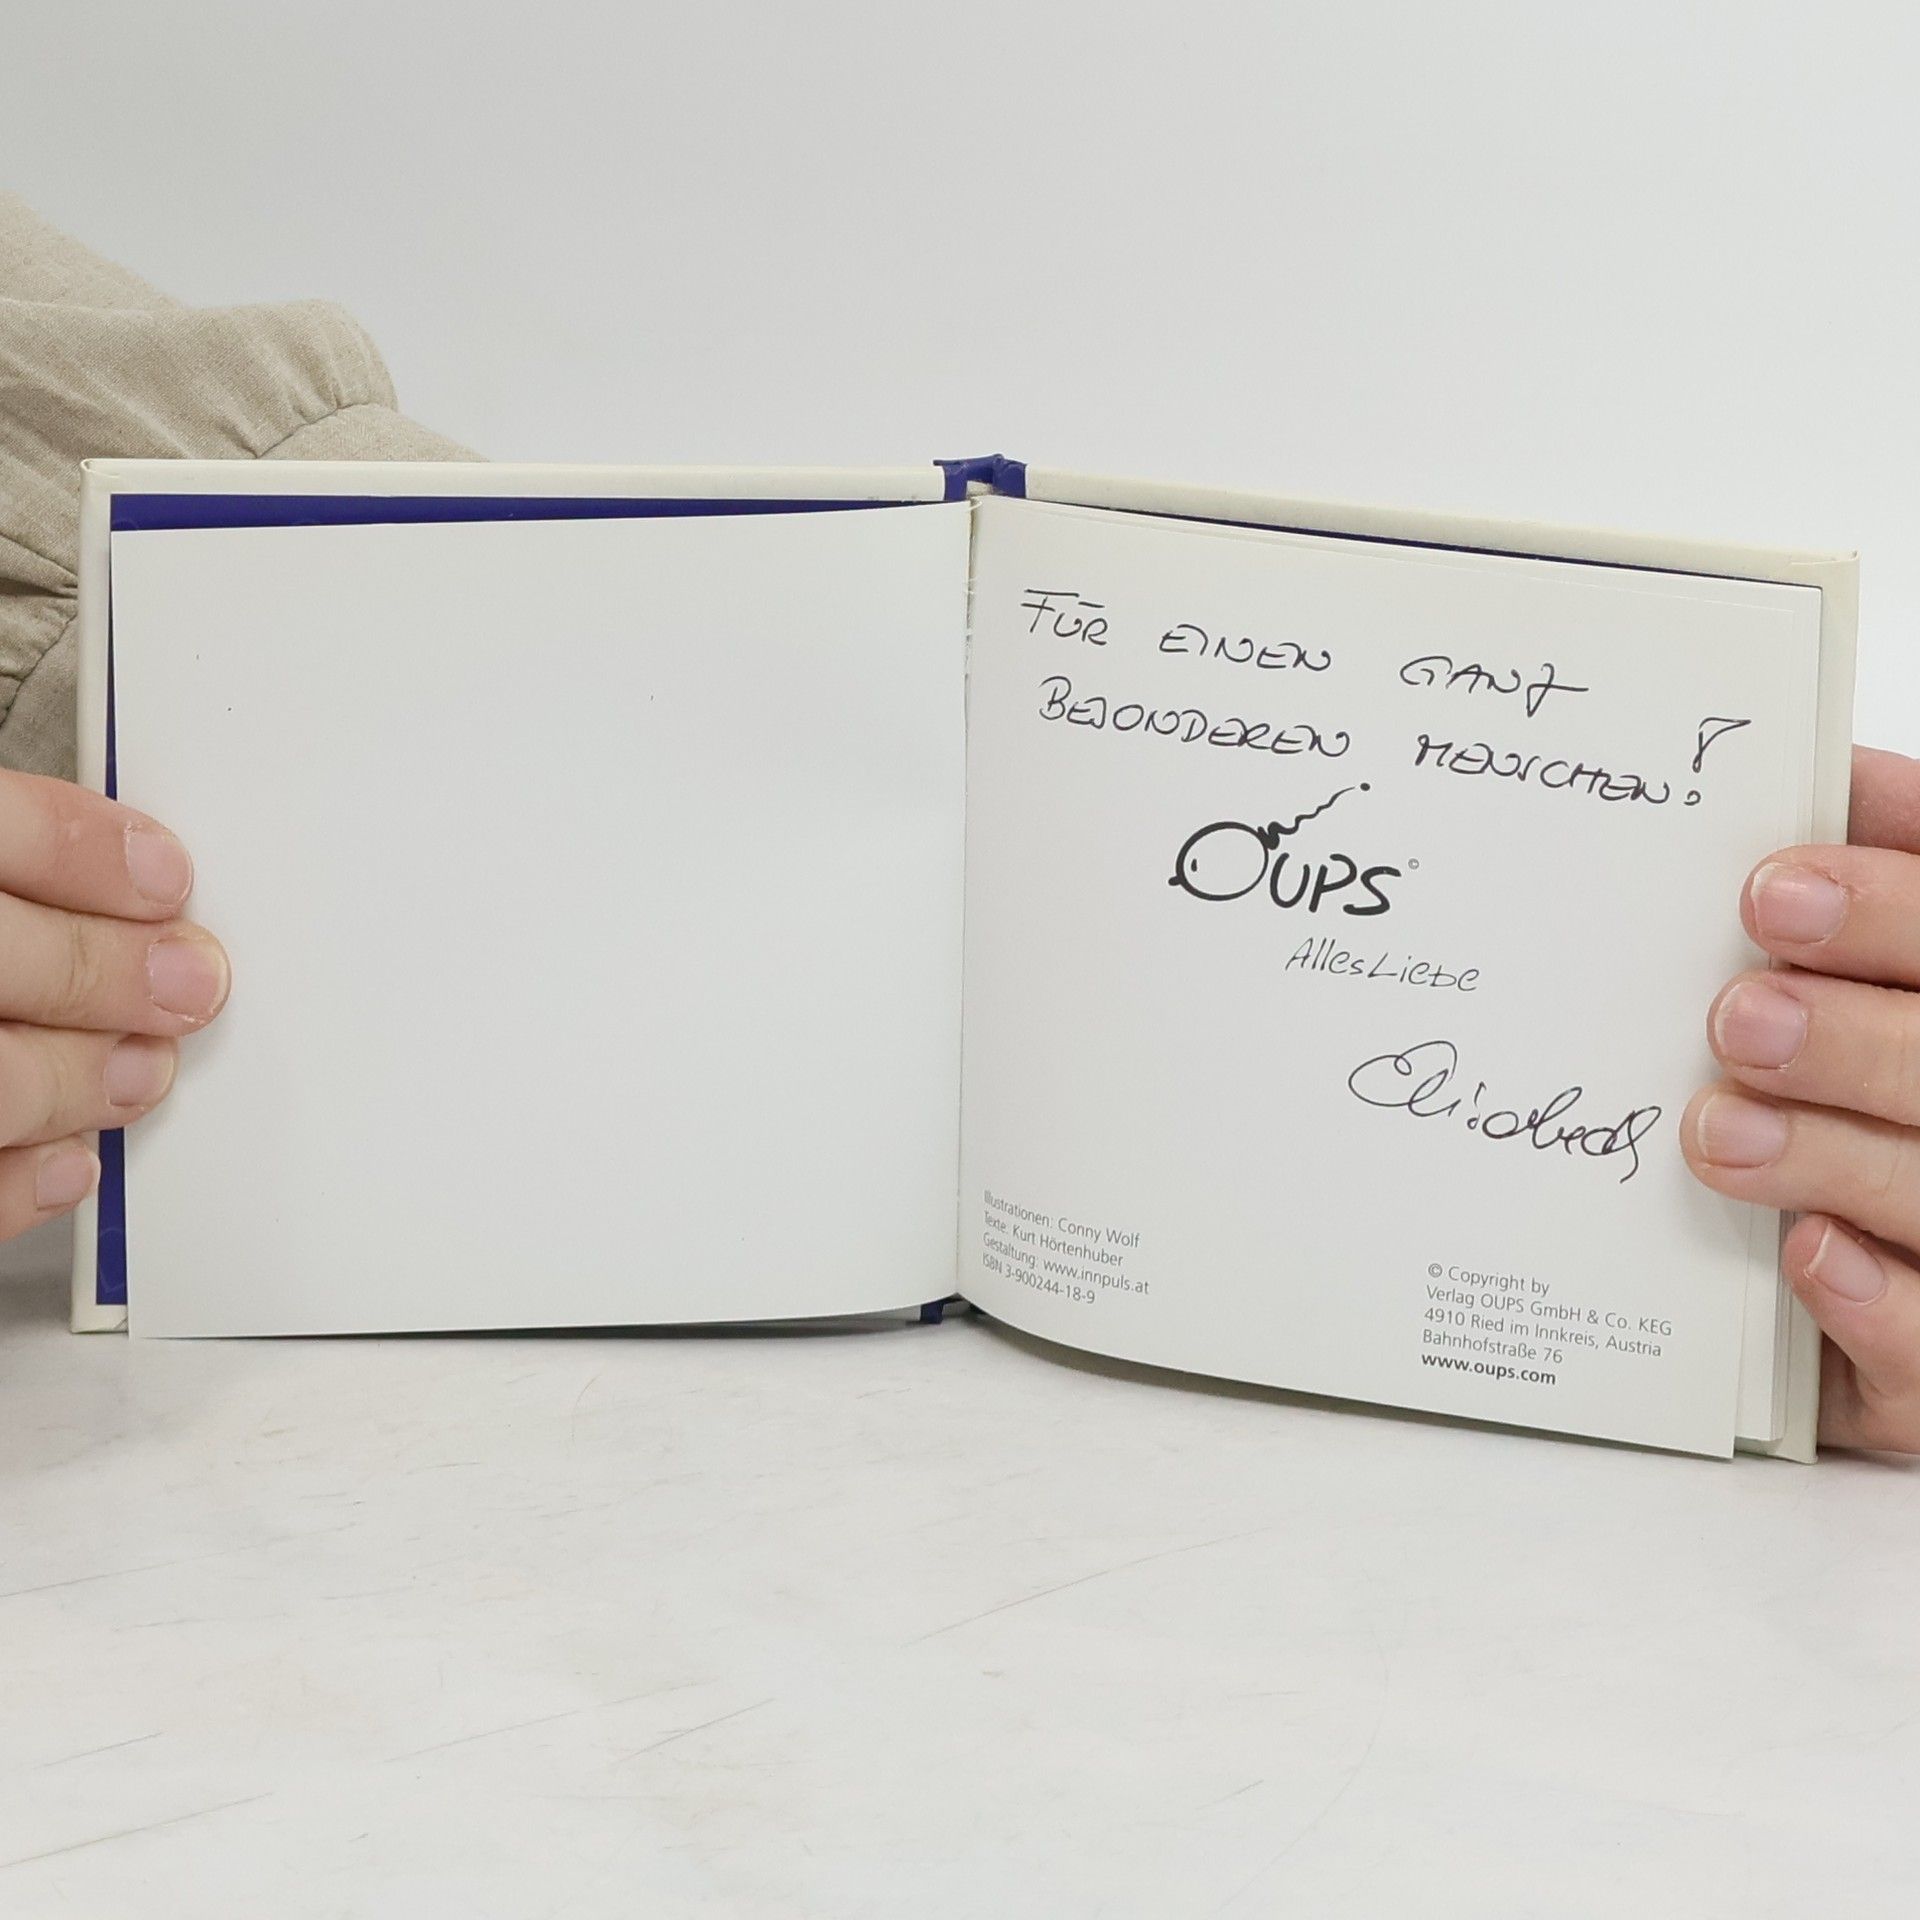 FÜR EINEN GANZ
BESONDEREN MENSCHEN!
OUPS©
Alles Liebe
Elisabeth
Illustrationen: Conny Wolf
Texte: Kurt Hörtenhuber
Gestaltung: www.innpuls.at
ISBN 3-900244-18-9
© Copyright by
Verlag OUPS GmbH & Co. KEG
4910 Ried im Innkreis, Austria
Bahnhofstraße 76
www.oups.com